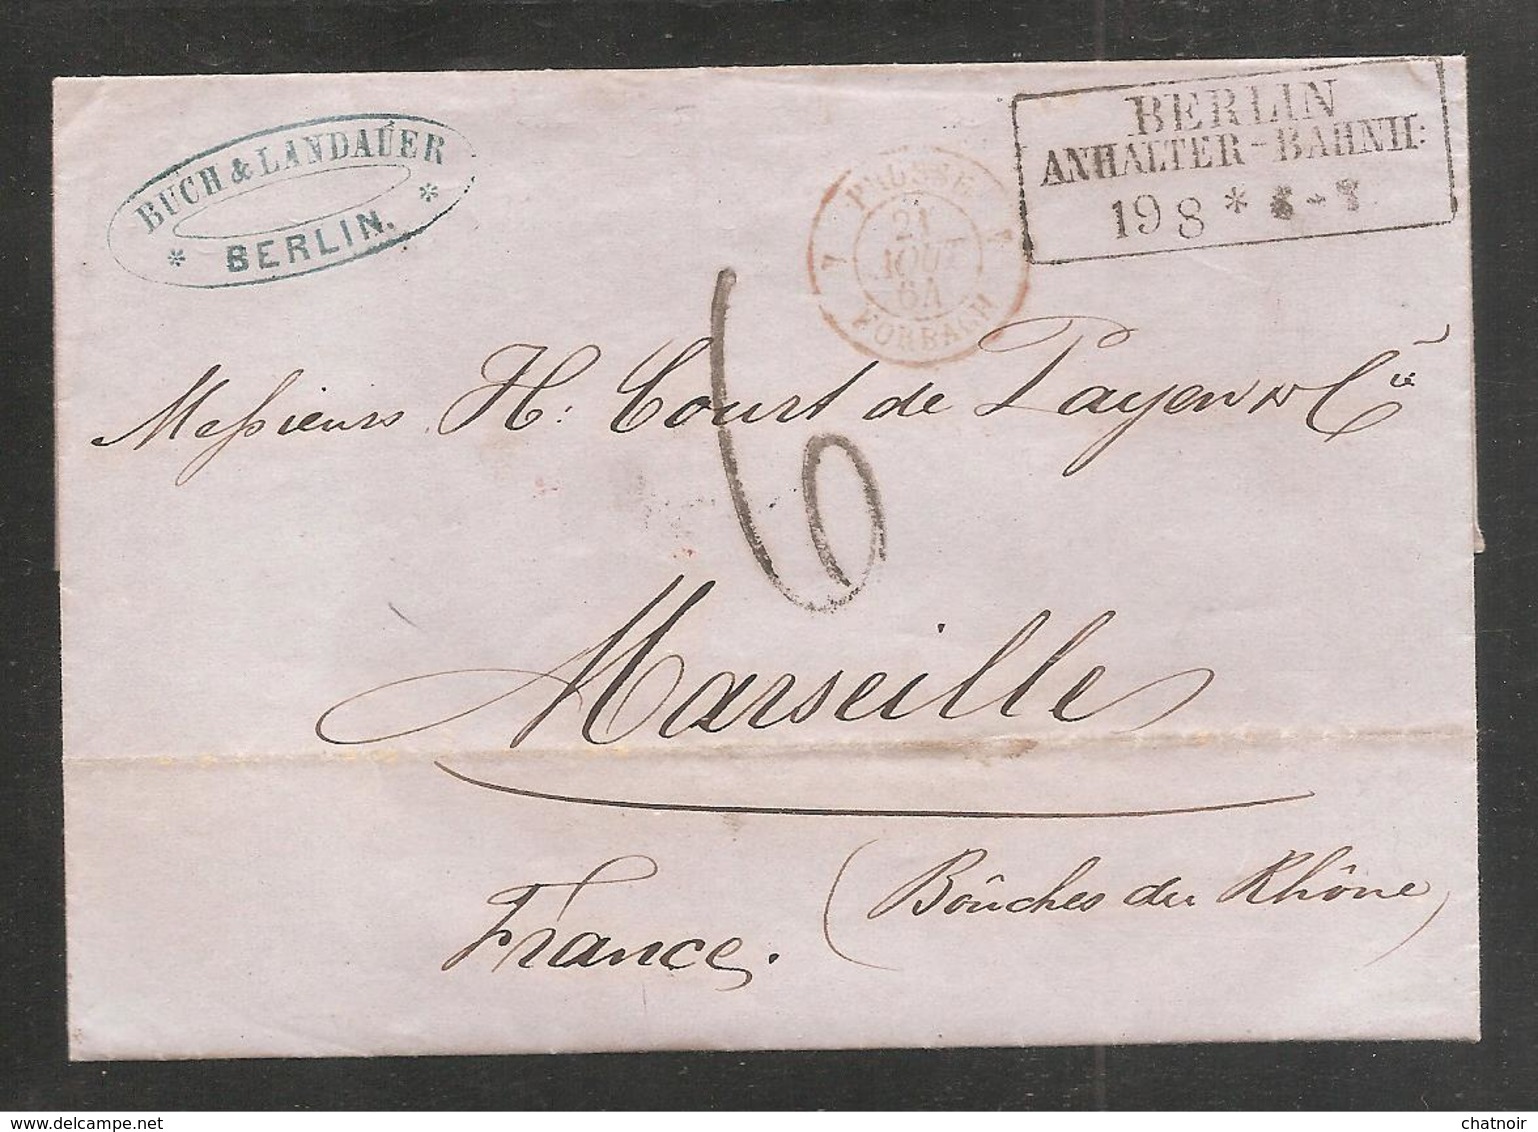 BUCH & LANDAUER
* BERLIN. *
BERLIN
ANHALTER-BAHNH:
19 8 * 6-7
PRUSSE
21
AOUT
64
FORBACH
6
Messieurs H: Court de Payen & Cie
Marseille
France.
(Boûches du Rhône)
delcampe.net
chatnoir